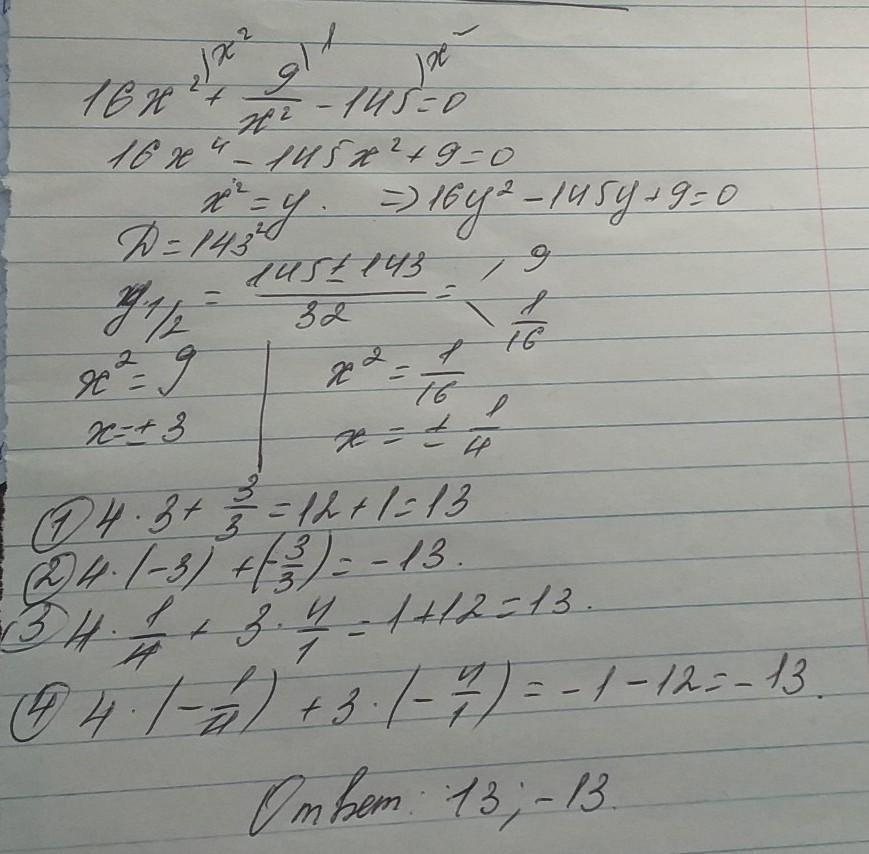 16x² + 9/x² - 145 = 0 )x² )1 )x²
16x⁴ - 145x² + 9 = 0
x² = y. => 16y² - 145y + 9 = 0
D = 143²
y1/2 = (145 ± 143)/32 = 9 1/16
x² = 9 | x² = 1/16
x = ± 3 | x = ± 1/4
① 4 · 3 + 3/3 = 12 + 1 = 13
② 4 · (-3) + (-3/3) = -13.
③ 4 · 1/4 + 3 · 4/1 = 1 + 12 = 13.
④ 4 · (-1/4) + 3 · (-4/1) = -1 - 12 = -13.
Ответ: 13; -13.